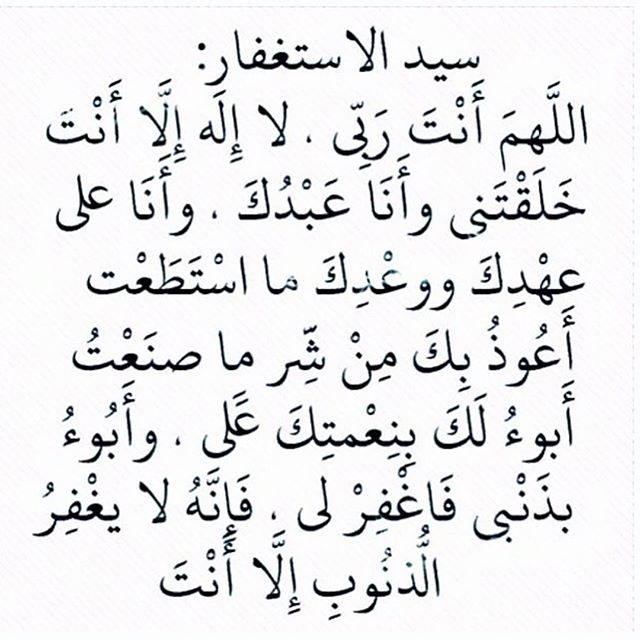 سيد الاستغفار:
اللَّهمَ أَنْتَ رَبِّى ، لا إِلَه إِلَّا أَنْتَ
خَلَقْتَنى وأَنَا عَبْدُكَ ، وأَنَا على
عهْدِكَ ووعْدِكَ ما اسْتَطَعْت
أَعُوذُ بِكَ مِنْ شَّرِ ما صنَعْتُ
أَبوءُ لَكَ بِنِعْمتِكَ عَلَى ، وأَبُوءُ
بذَنْبى فَاغْفِرْ لى ، فَإِنَّهُ لا يغْفِرُ
الُّذنُوبِ إِلَّا أَنْتَ